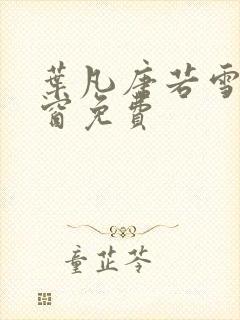 葉凡唐若雪
窗免費
童芷苓